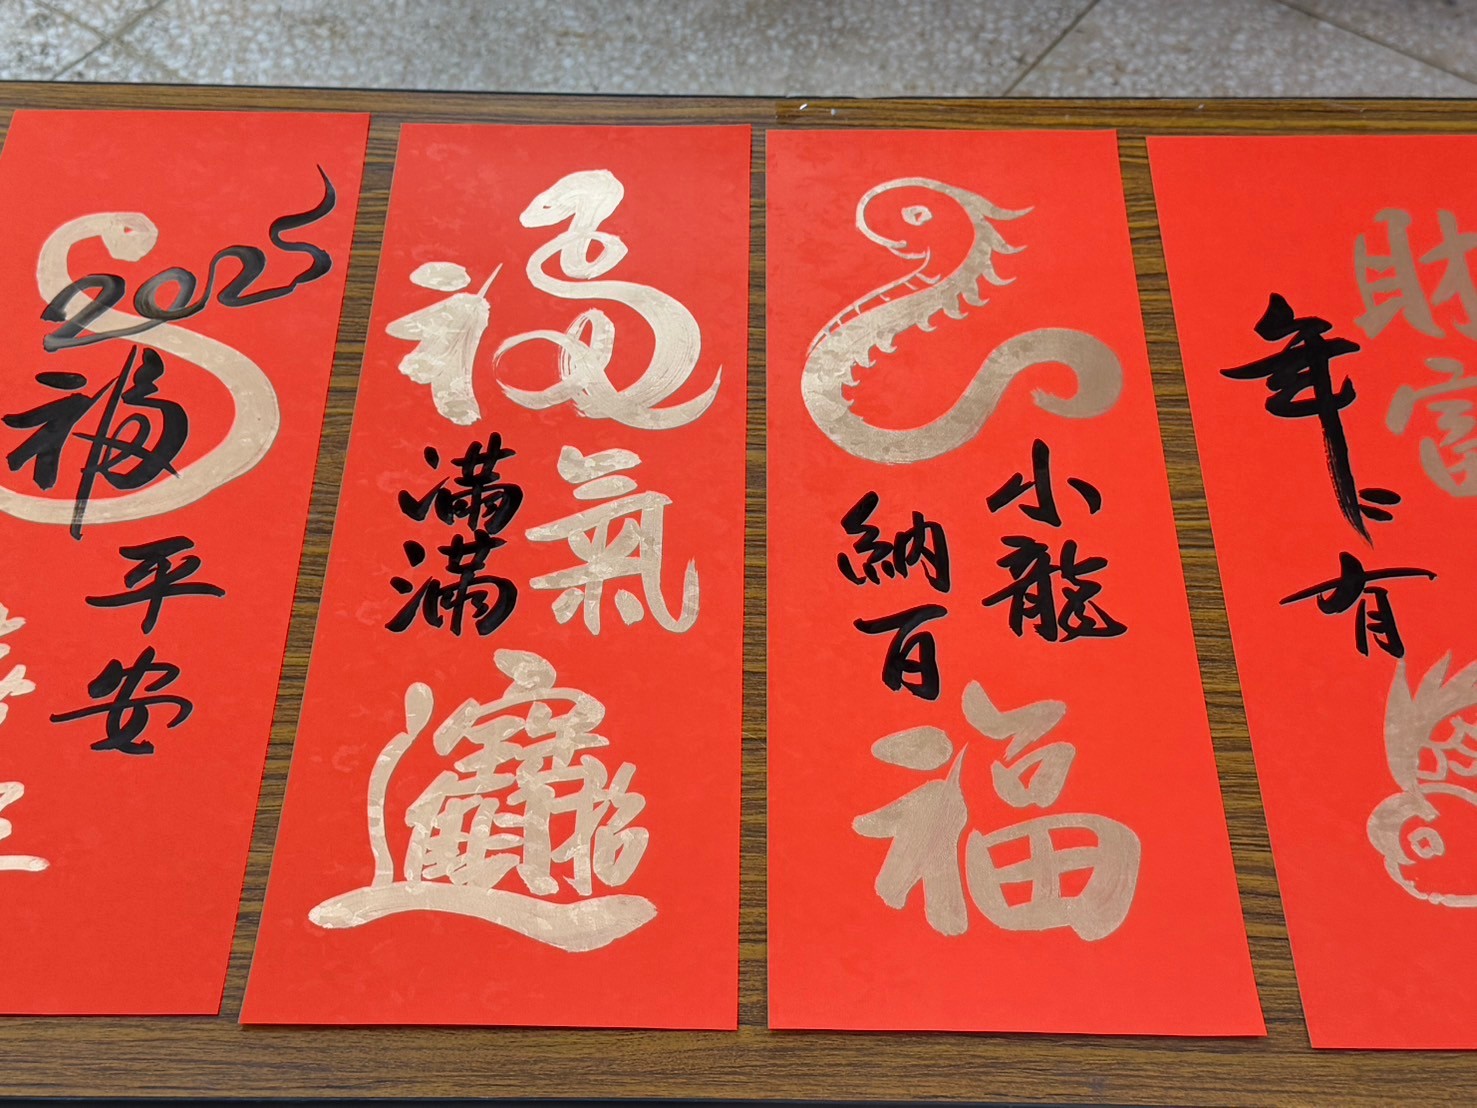 2025
福
平
安
福氣
滿滿
招財進寶
小龍
納百
福
財富
年年有